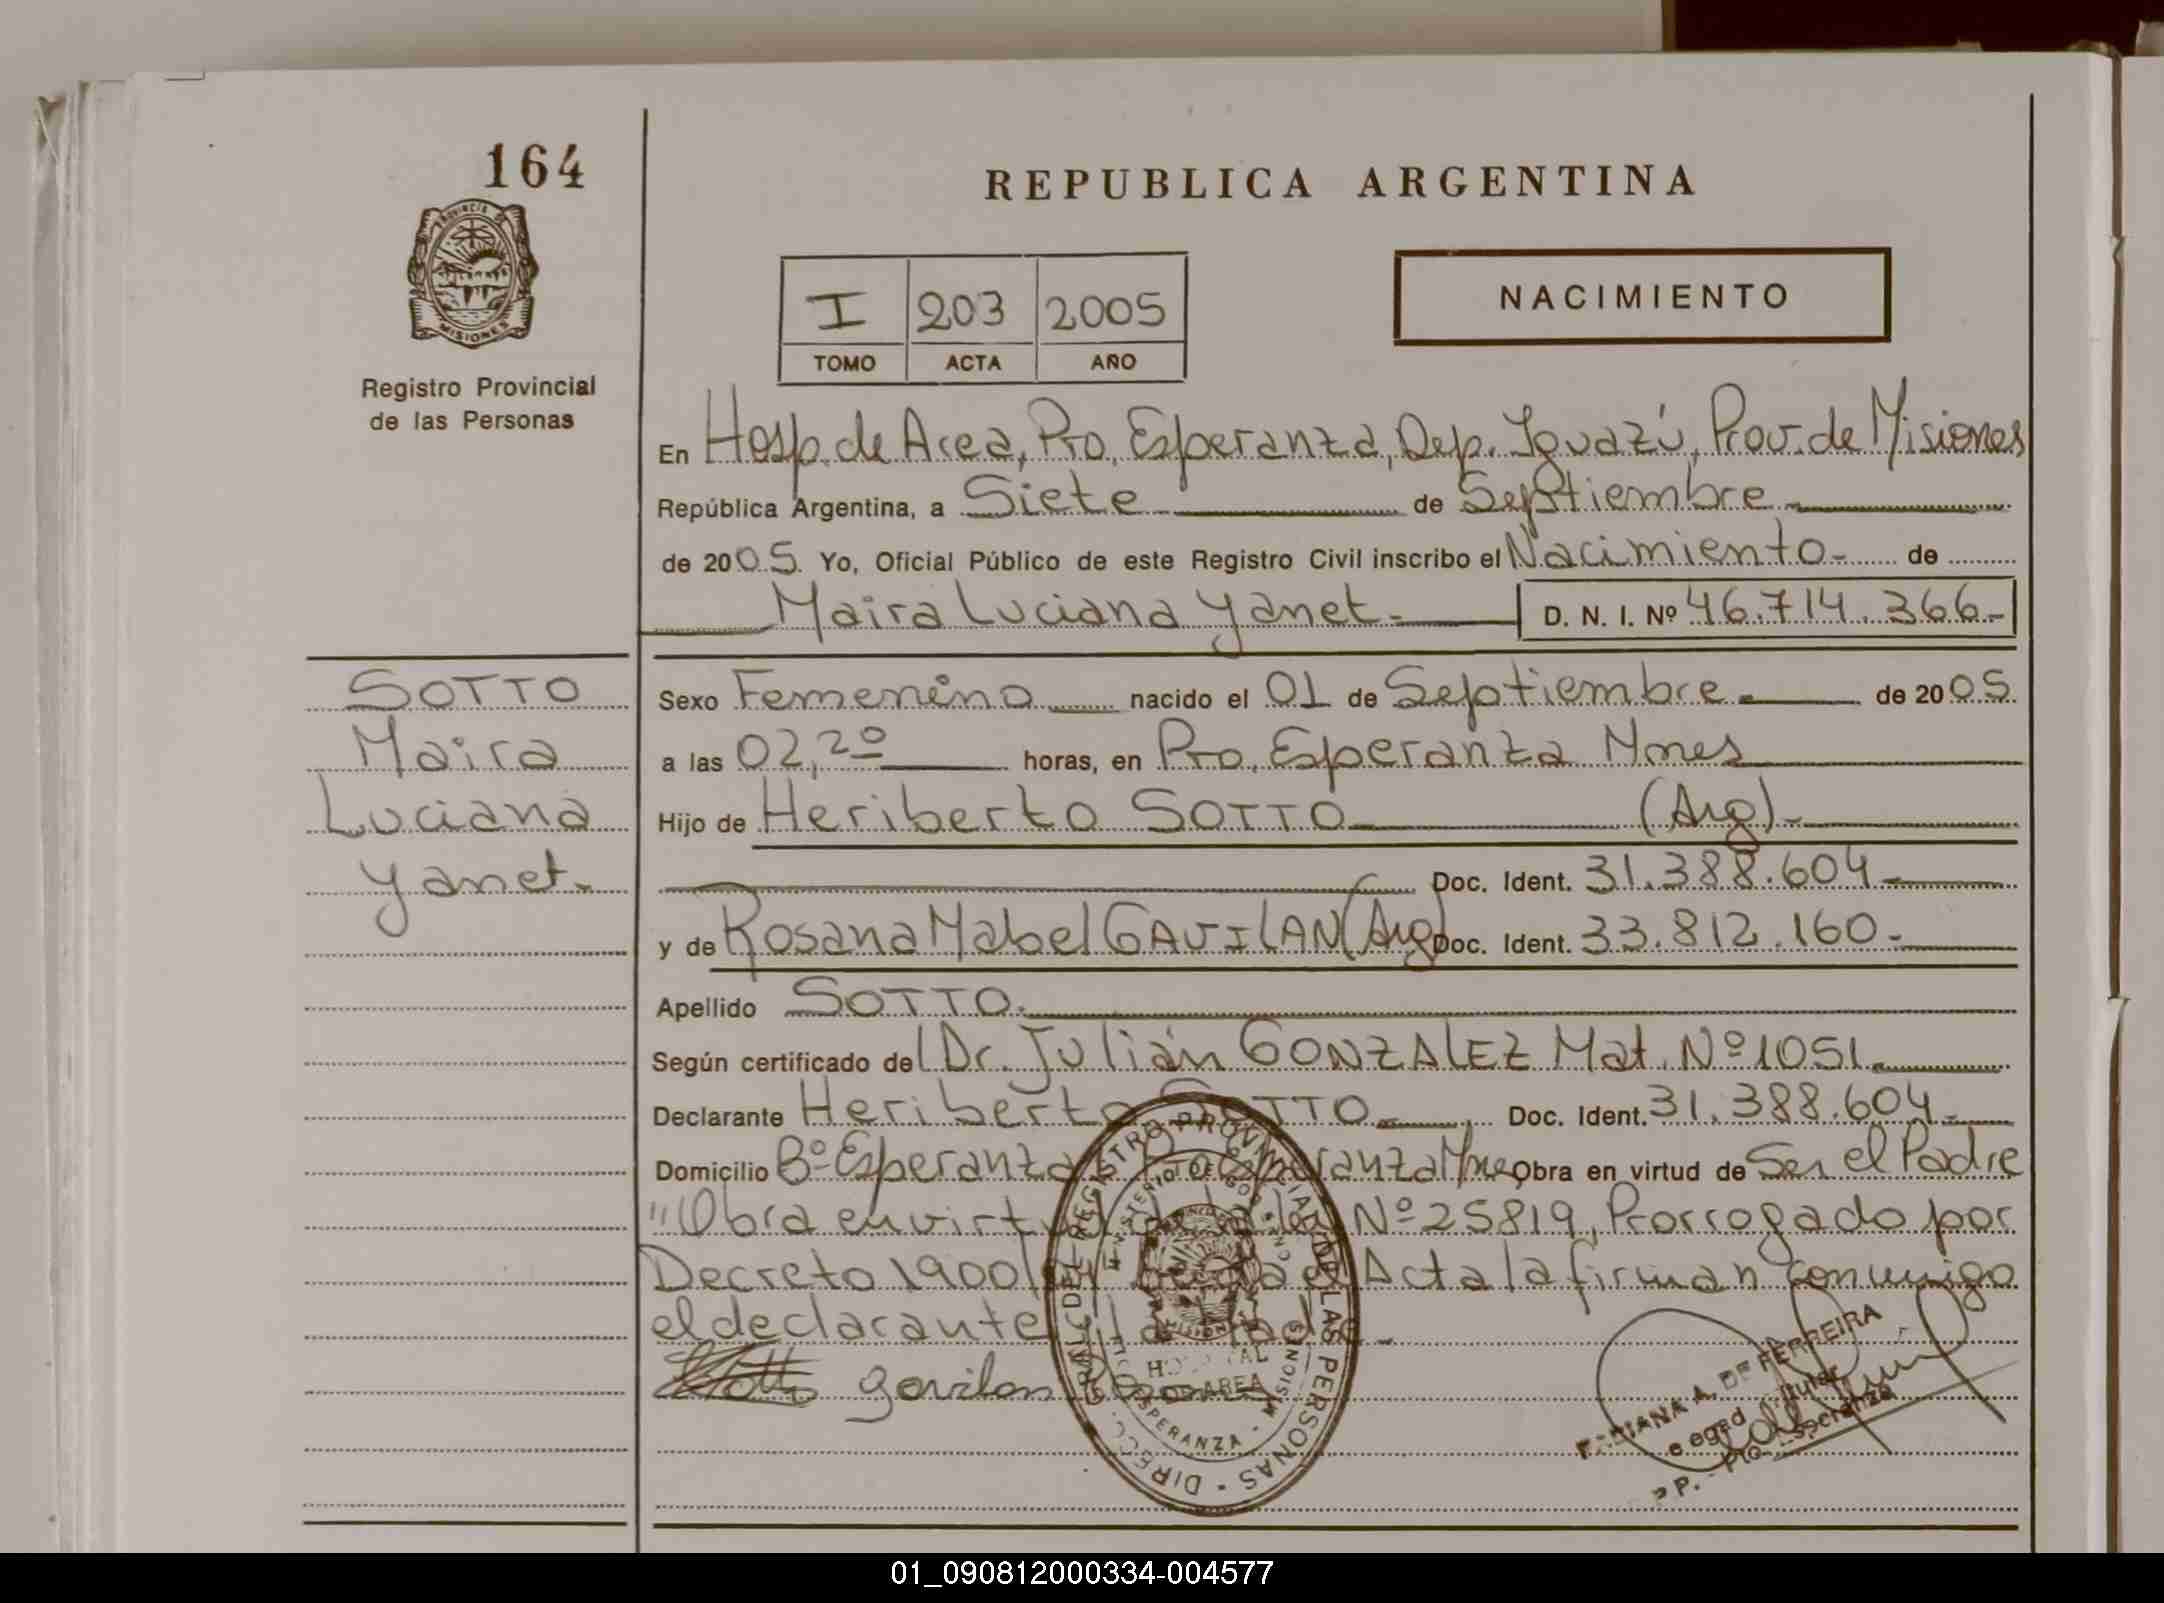 164
PROVINCIA DE
MISIONES
Registro Provincial
de las Personas
REPUBLICA ARGENTINA
I 203 2005
TOMO ACTA AÑO
NACIMIENTO
En Hosp. de Area, Pto. Esperanza, Dep. Iguazú, Prov. de Misiones
República Argentina, a Siete de Septiembre
de 2005 Yo, Oficial Público de este Registro Civil inscribo el Nacimiento de
Maira Luciana Yanet D. N. I. Nº 46.714.366
SOTTO
Maira
Luciana
Yanet
Sexo Femenino nacido el 01 de Septiembre de 2005
a las 02,20 horas, en Pto. Esperanza Mnes
Hijo de Heriberto SOTTO (Arg)
Doc. Ident. 31.388.604
y de Rosana Mabel GAVILAN (Arg) Doc. Ident. 33.812.160
Apellido SOTTO
Según certificado del Dr. Julián GONZALEZ Mat. Nº 1051
Declarante Heriberto SOTTO Doc. Ident. 31.388.604
Domicilio Bº Esperanza Pto Esperanza Mnes Obra en virtud de Ser el Padre
"Obra en virtud de la Ley Nº 25819, Prorrogado por
Decreto 1900 el Acta la firman conmigo
el declarante
Gavilan
DIRECC. GRAL. DEL REGISTRO PROVINCIAL DE LAS PERSONAS
MINISTERIO DE GOBIERNO
MISIONES
HOSPITAL
DE AREA
ESPERANZA - MISIONES
FABIANA A. DE FERREIRA
Titular
Pto. Esperanza
01_090812000334-004577